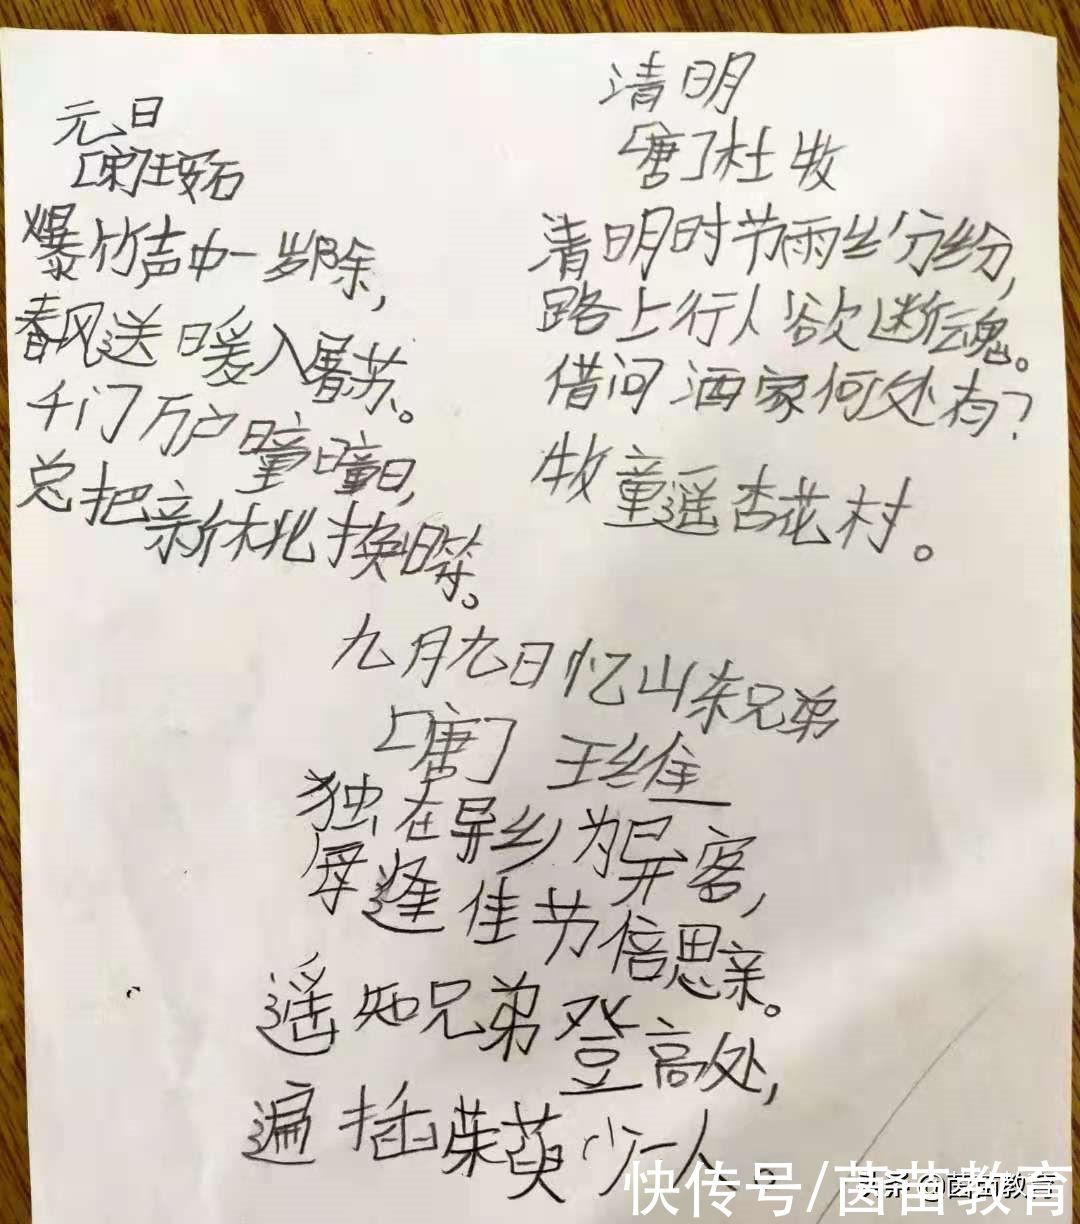 元日
[宋]王安石
爆竹声中一岁除,
春风送暖入屠苏。
千门万户曈曈日,
总把新桃换旧符。
清明
[唐]杜牧
清明时节雨纷纷,
路上行人欲断魂。
借问酒家何处有?
牧童遥杏花村。
九月九日忆山东兄弟
[唐] 王维
独在异乡为异客,
每逢佳节倍思亲。
遥知兄弟登高处,
遍插茱萸少一人。
快传号/茵苗教育
头条 @茵苗教育